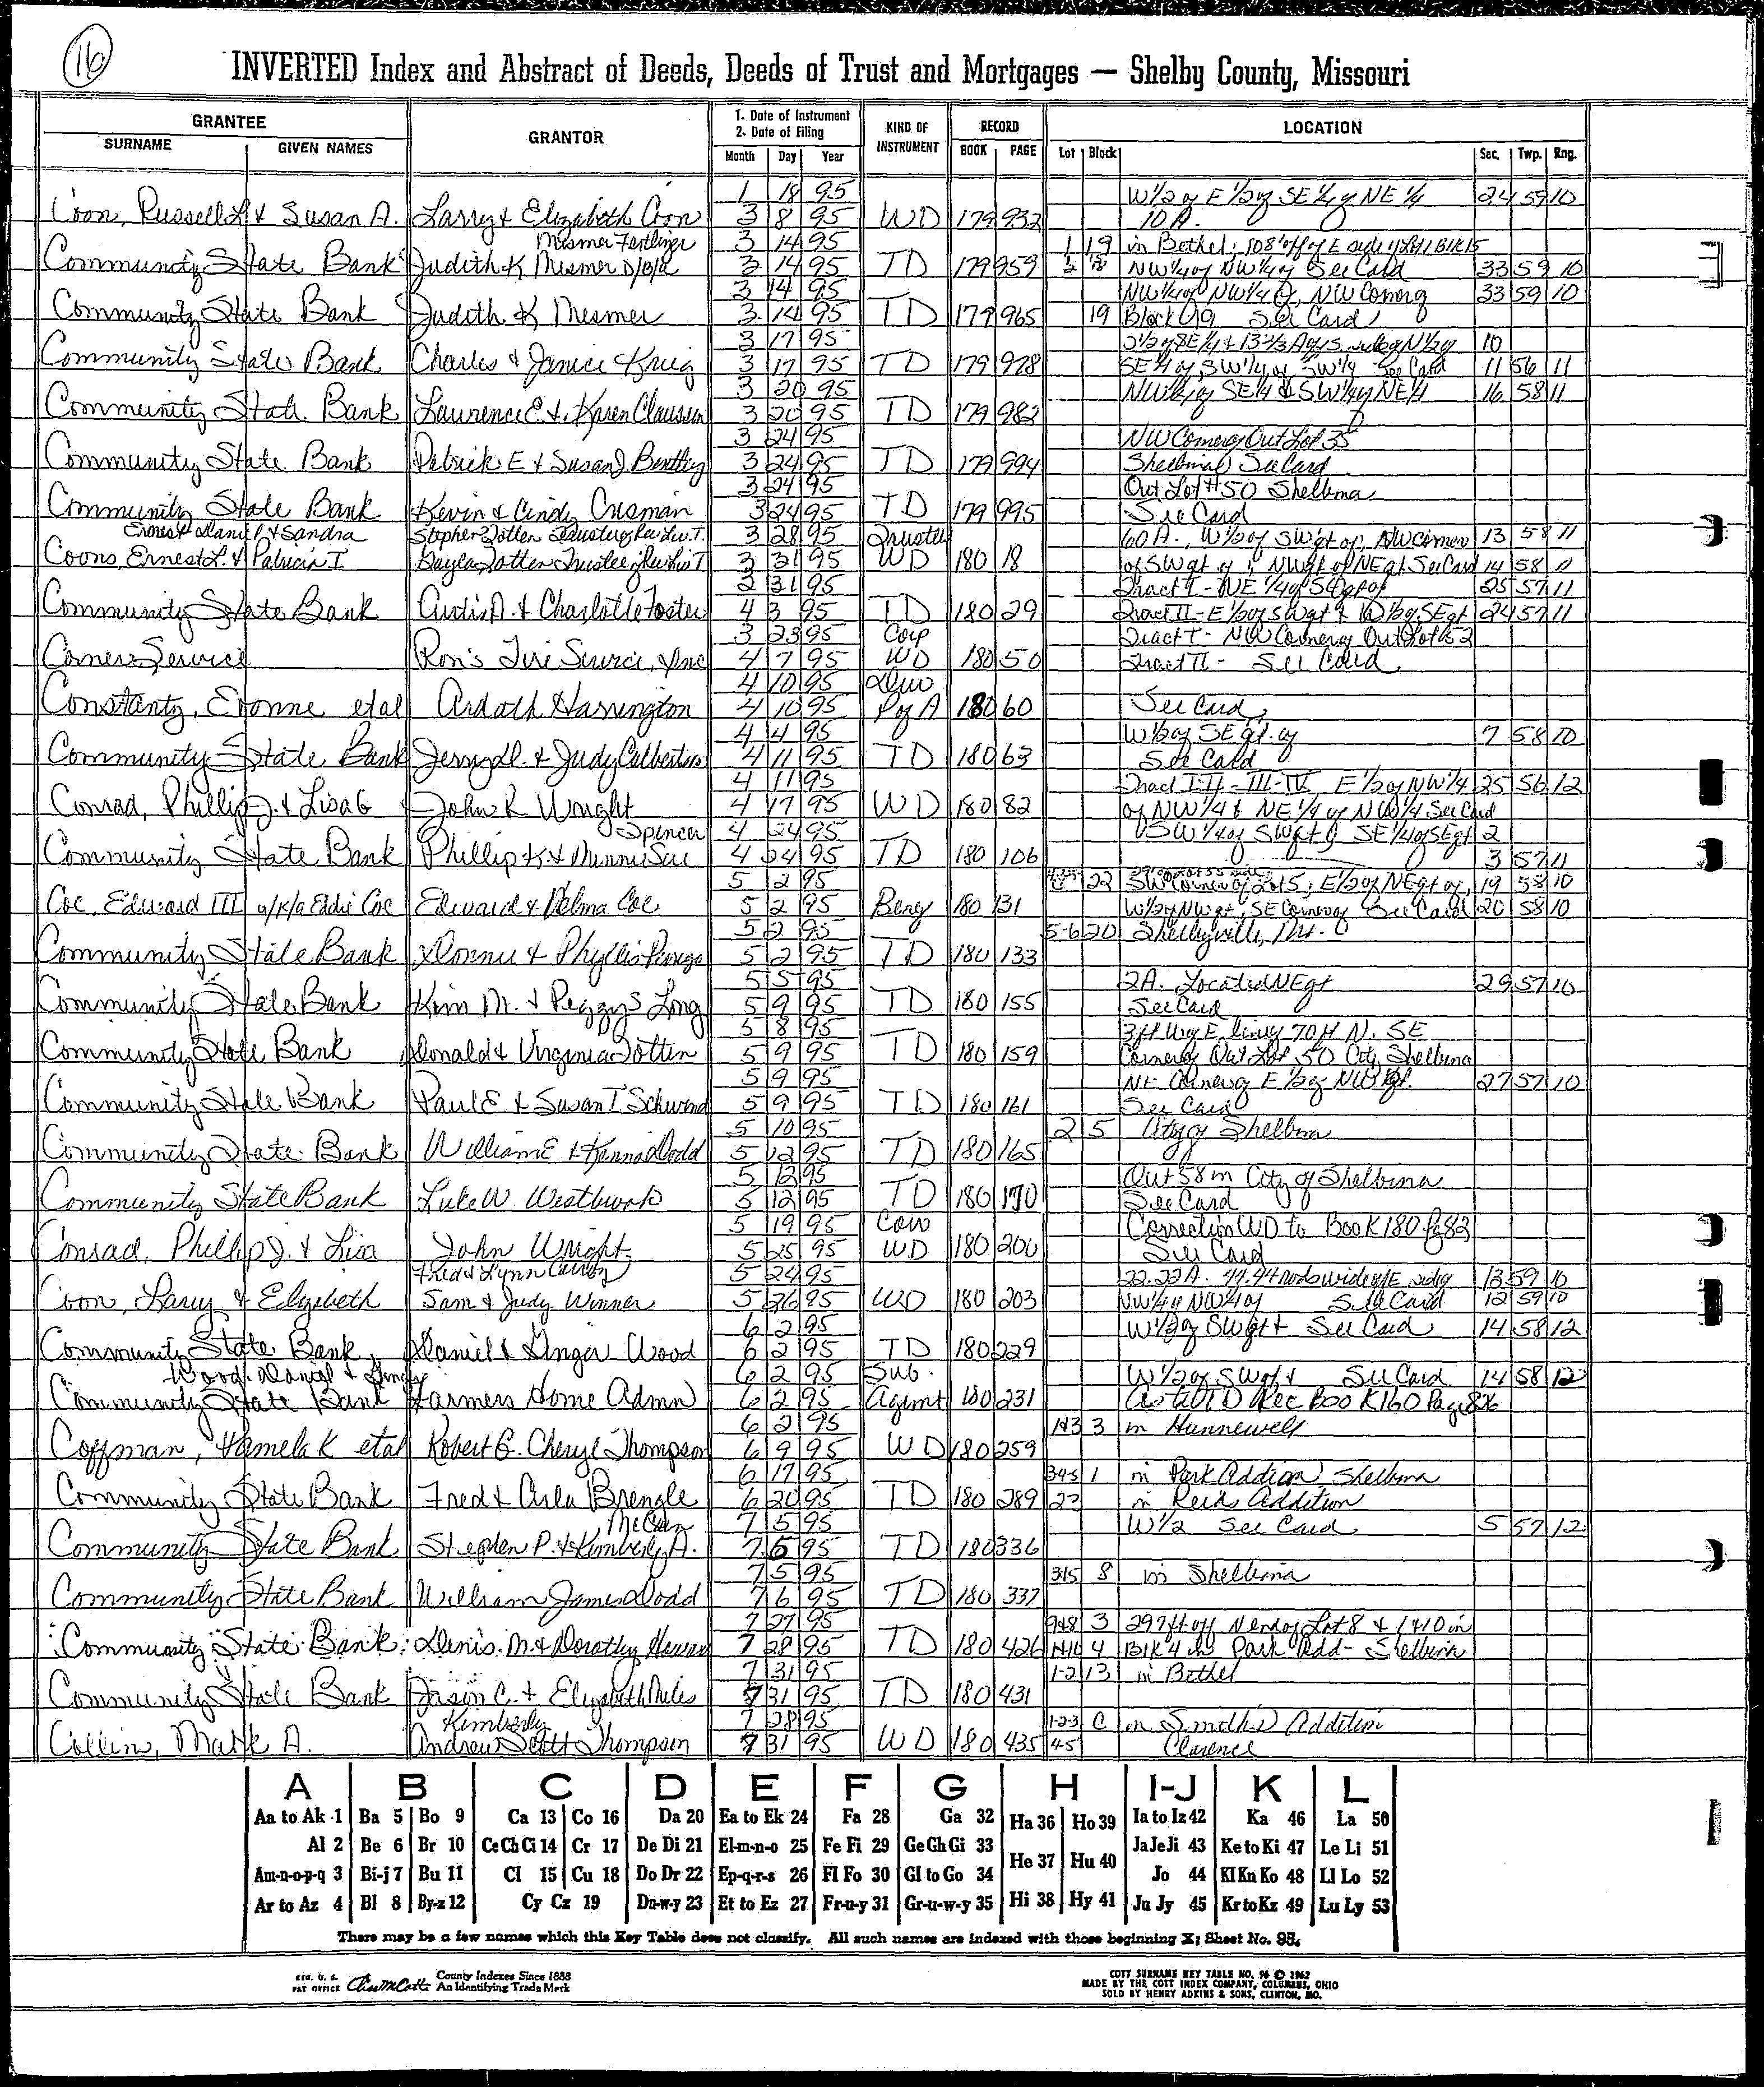 16
INVERTED Index and Abstract of Deeds, Deeds of Trust and Mortgages — Shelby County, Missouri
GRANTEE GRANTOR 1. Date of Instrument 2. Date of Filing KIND OF INSTRUMENT RECORD LOCATION
SURNAME GIVEN NAMES Month Day Year BOOK PAGE Lot Block Sec. Twp. Rng.
1 18 95 W 1/2 of E 1/2 of SE 1/4 of NE 1/4 24 59 10
Coon, Russell L & Susan A. Larry & Elizabeth Coon 3 8 95 WD 179 932 10 A.
Mesmer Fertilizer 3 14 95 1 19 in Bethel; 108' off of E side of Lot 1 Blk 15
Community State Bank Judith K Mesmer D/B/A 3 14 95 TD 179 959 NW 1/4 of NW 1/4 of See Card 33 59 10
3 14 95 NW 1/4 of NW 1/4 of, NW Corner of 33 59 10
Community State Bank Judith K Mesmer 3 14 95 TD 179 965 19 Block 19 See Card
3 17 95 S 1/2 of SE 1/4 & 13 1/3 A of S side of N 1/2 of 10
Community State Bank Charles & Janice Krieg 3 17 95 TD 179 978 SE 1/4 of SW 1/4 of SW 1/4 See Card 11 56 11
3 20 95 NW 1/4 of SE 1/4 & SW 1/4 of NE 1/4 16 58 11
Community State Bank Laurence E. & Karen Claussen 3 20 95 TD 179 982
3 24 95 NW Corner of Out Lot 35
Community State Bank Patrick E & Susan J Bentley 3 24 95 TD 179 994 Shelbina See Card
3 24 95 Out Lot #50 Shelbina
Community State Bank Kevin & Cindy Crisman 3 24 95 TD 179 995 See Card
Ernest Daniel & Sandra Stephen Totten Trustee of Rev Liv T. 3 28 95 Trustee 60 A., W 1/2 of SW qt of, NW Corner 13 58 11
Coons, Ernest L. & Patricia I Gayla Totten Trustee of Rev Liv T 3 31 95 WD 180 18 of SW qt of & NW qt of NE qt See Card 14 58 11
3 31 95 Tract I - NE 1/4 of 25 57 11
Community State Bank Curtis D. & Charlotte Foster 4 3 95 TD 180 29 Tract II - E 1/2 of SW qt & W 1/2 of SE qt 24 57 11
3 23 95 Corp Tract I - NW Corner of Out Lot 52
Corner Service Ron's Tire Service, Inc 4 7 95 WD 180 50 Tract II - See Card
4 10 95 Dur
Constantz, Evonne etal Ardath Harrington 4 10 95 P of A 180 60 See Card
4 4 95 W 1/2 of SE qt. of 7 58 10
Community State Bank Jerry D. & Judy Culbertson 4 11 95 TD 180 63 See Card
4 11 95 Tract I-II-III-IV, E 1/2 of NW 1/4 25 56 12
Conrad, Phillip J. & Lisa G John R Wright 4 17 95 WD 180 82 of NW 1/4 & NE 1/4 of NW 1/4 See Card
Spencer 4 24 95 SW 1/4 of SW qt & SE 1/4 of SE qt 2
Community State Bank Phillip K. & Minnie Sue 4 24 95 TD 180 106 3 57 11
5 2 95 22 SW Corner of Lot 5; E 1/2 of NE qt of, 19 58 10
Coe, Edward III a/k/a Eddie Coe Edward & Velma Coe 5 2 95 Beney 180 131 W 1/2 of NW qt, SE Corner of See Card 20 58 10
5 2 95 5-6 20 Shelbyville, Mo.
Community State Bank Donnie & Phyllis 5 2 95 TD 180 133
5 5 95 2A. Located NE qt 29 57 10
Community State Bank Kim M. & Peggy S Long 5 9 95 TD 180 155 See Card
5 8 95 3 ft W of E line of 70 ft N. SE
Community State Bank Donald & Virginia Totten 5 9 95 TD 180 159 Corner of Out Lot 50 City Shelbina
5 9 95 NE Corner of E 1/2 of NW qt. 27 57 10
Community State Bank Paul E & Susan I Schwend 5 9 95 TD 180 161 See Card
5 10 95 2 5 City of Shelbina
Community State Bank William E & Donna Dodd 5 12 95 TD 180 165
5 12 95 Out 58 in City of Shelbina
Community State Bank Luke W. Westbrook 5 12 95 TD 180 170 See Card
5 19 95 Corr Correction WD to Book 180 Pg 82
Conrad, Phillip J. & Lisa John Wright 5 25 95 WD 180 200 See Card
Fred & Lynn 5 24 95 22.22 A. 44.44 rods wide off E side of 13 59 10
Coon, Larry & Elizabeth Sam & Judy Winner 5 26 95 WD 180 203 NW 1/4 of NW 1/4 of See Card 12 59 10
6 2 95 W 1/2 of SW qt & See Card 14 58 12
Community State Bank Daniel & Ginger Wood 6 2 95 TD 180 229
Wood, Daniel & 6 2 95 Sub. W 1/2 of SW qt & See Card 14 58 12
Community State Bank Farmers Home Admn 6 2 95 Agrmt 180 231 as to D Rec Book 160 Page 826
6 2 95 3 in Hunnewell
Coffman, Pamela K etal Robert G. Cheryl Thompson 6 9 95 WD 180 259
6 17 95 3-4-5 1 in Park Addition Shelbina
Community State Bank Fred & Arla Brengle 6 20 95 TD 180 289 23 in Reids Addition
7 5 95 W 1/2 See Card 5 57 12
Community State Bank Stephen P. & Kimberly A. 7 6 95 TD 180 336
7 5 95 8 in Shelbina
Community State Bank William James Dodd 7 6 95 TD 180 337
7 27 95 3 297 ft off N end of Lot 8 & 1410 in
Community State Bank Denis M & Dorothy 7 28 95 TD 180 426 4 Blk 4 in Park Add - Shelbina
7 31 95 1-2 13 in Bethel
Community State Bank Jason C. & Elizabeth 7 31 95 TD 180 431
Kimberly 7 28 95 1-2-3 C in Addition
Collin, Mark A. Andrew Scott Thompson 7 31 95 WD 180 435 45 Clarence
A B C D E F G H I-J K L
Aa to Ak 1 Ba 5 Bo 9 Ca 13 Co 16 Da 20 Ea to Ek 24 Fa 28 Ga 32 Ha 36 Ho 39 Ia to Iz 42 Ka 46 La 50
Al 2 Be 6 Br 10 Ce Ch Ci 14 Cr 17 De Di 21 El-m-n-o 25 Fe Fi 29 Ge Gh Gi 33 He 37 Hu 40 Ja Je Ji 43 Ke to Ki 47 Le Li 51
Am-n-o-p-q 3 Bi-j 7 Bu 11 Cl 15 Cu 18 Do Dr 22 Ep-q-r-s 26 Fl Fo 30 Gl to Go 34 Jo 44 Kl Kn Ko 48 Ll Lo 52
Ar to Az 4 Bl 8 By-z 12 Cy Cz 19 Du-w-y 23 Et to Ez 27 Fr-u-y 31 Gr-u-w-y 35 Hi 38 Hy 41 Ju Jy 45 Kr to Kz 49 Lu Ly 53
There may be a few names which this Key Table does not classify. All such names are indexed with those beginning X; Sheet No. 95.
REG. U. S. PAT OFFICE County Indexes Since 1888 An Identifying Trade Mark
COTT SURNAME KEY TABLE NO. 96 © 1962
MADE BY THE COTT INDEX COMPANY, COLUMBUS, OHIO
SOLD BY HENRY ADKINS & SONS, CLINTON, MO.